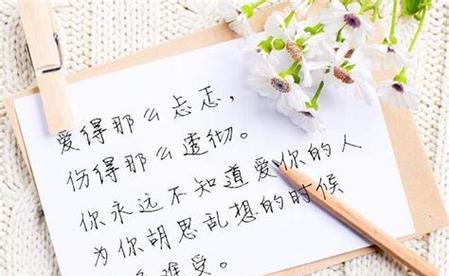 爱得那么忐忑,
伤得那么透彻。
你永远不知道爱你的人
为你胡思乱想的时候
难受。